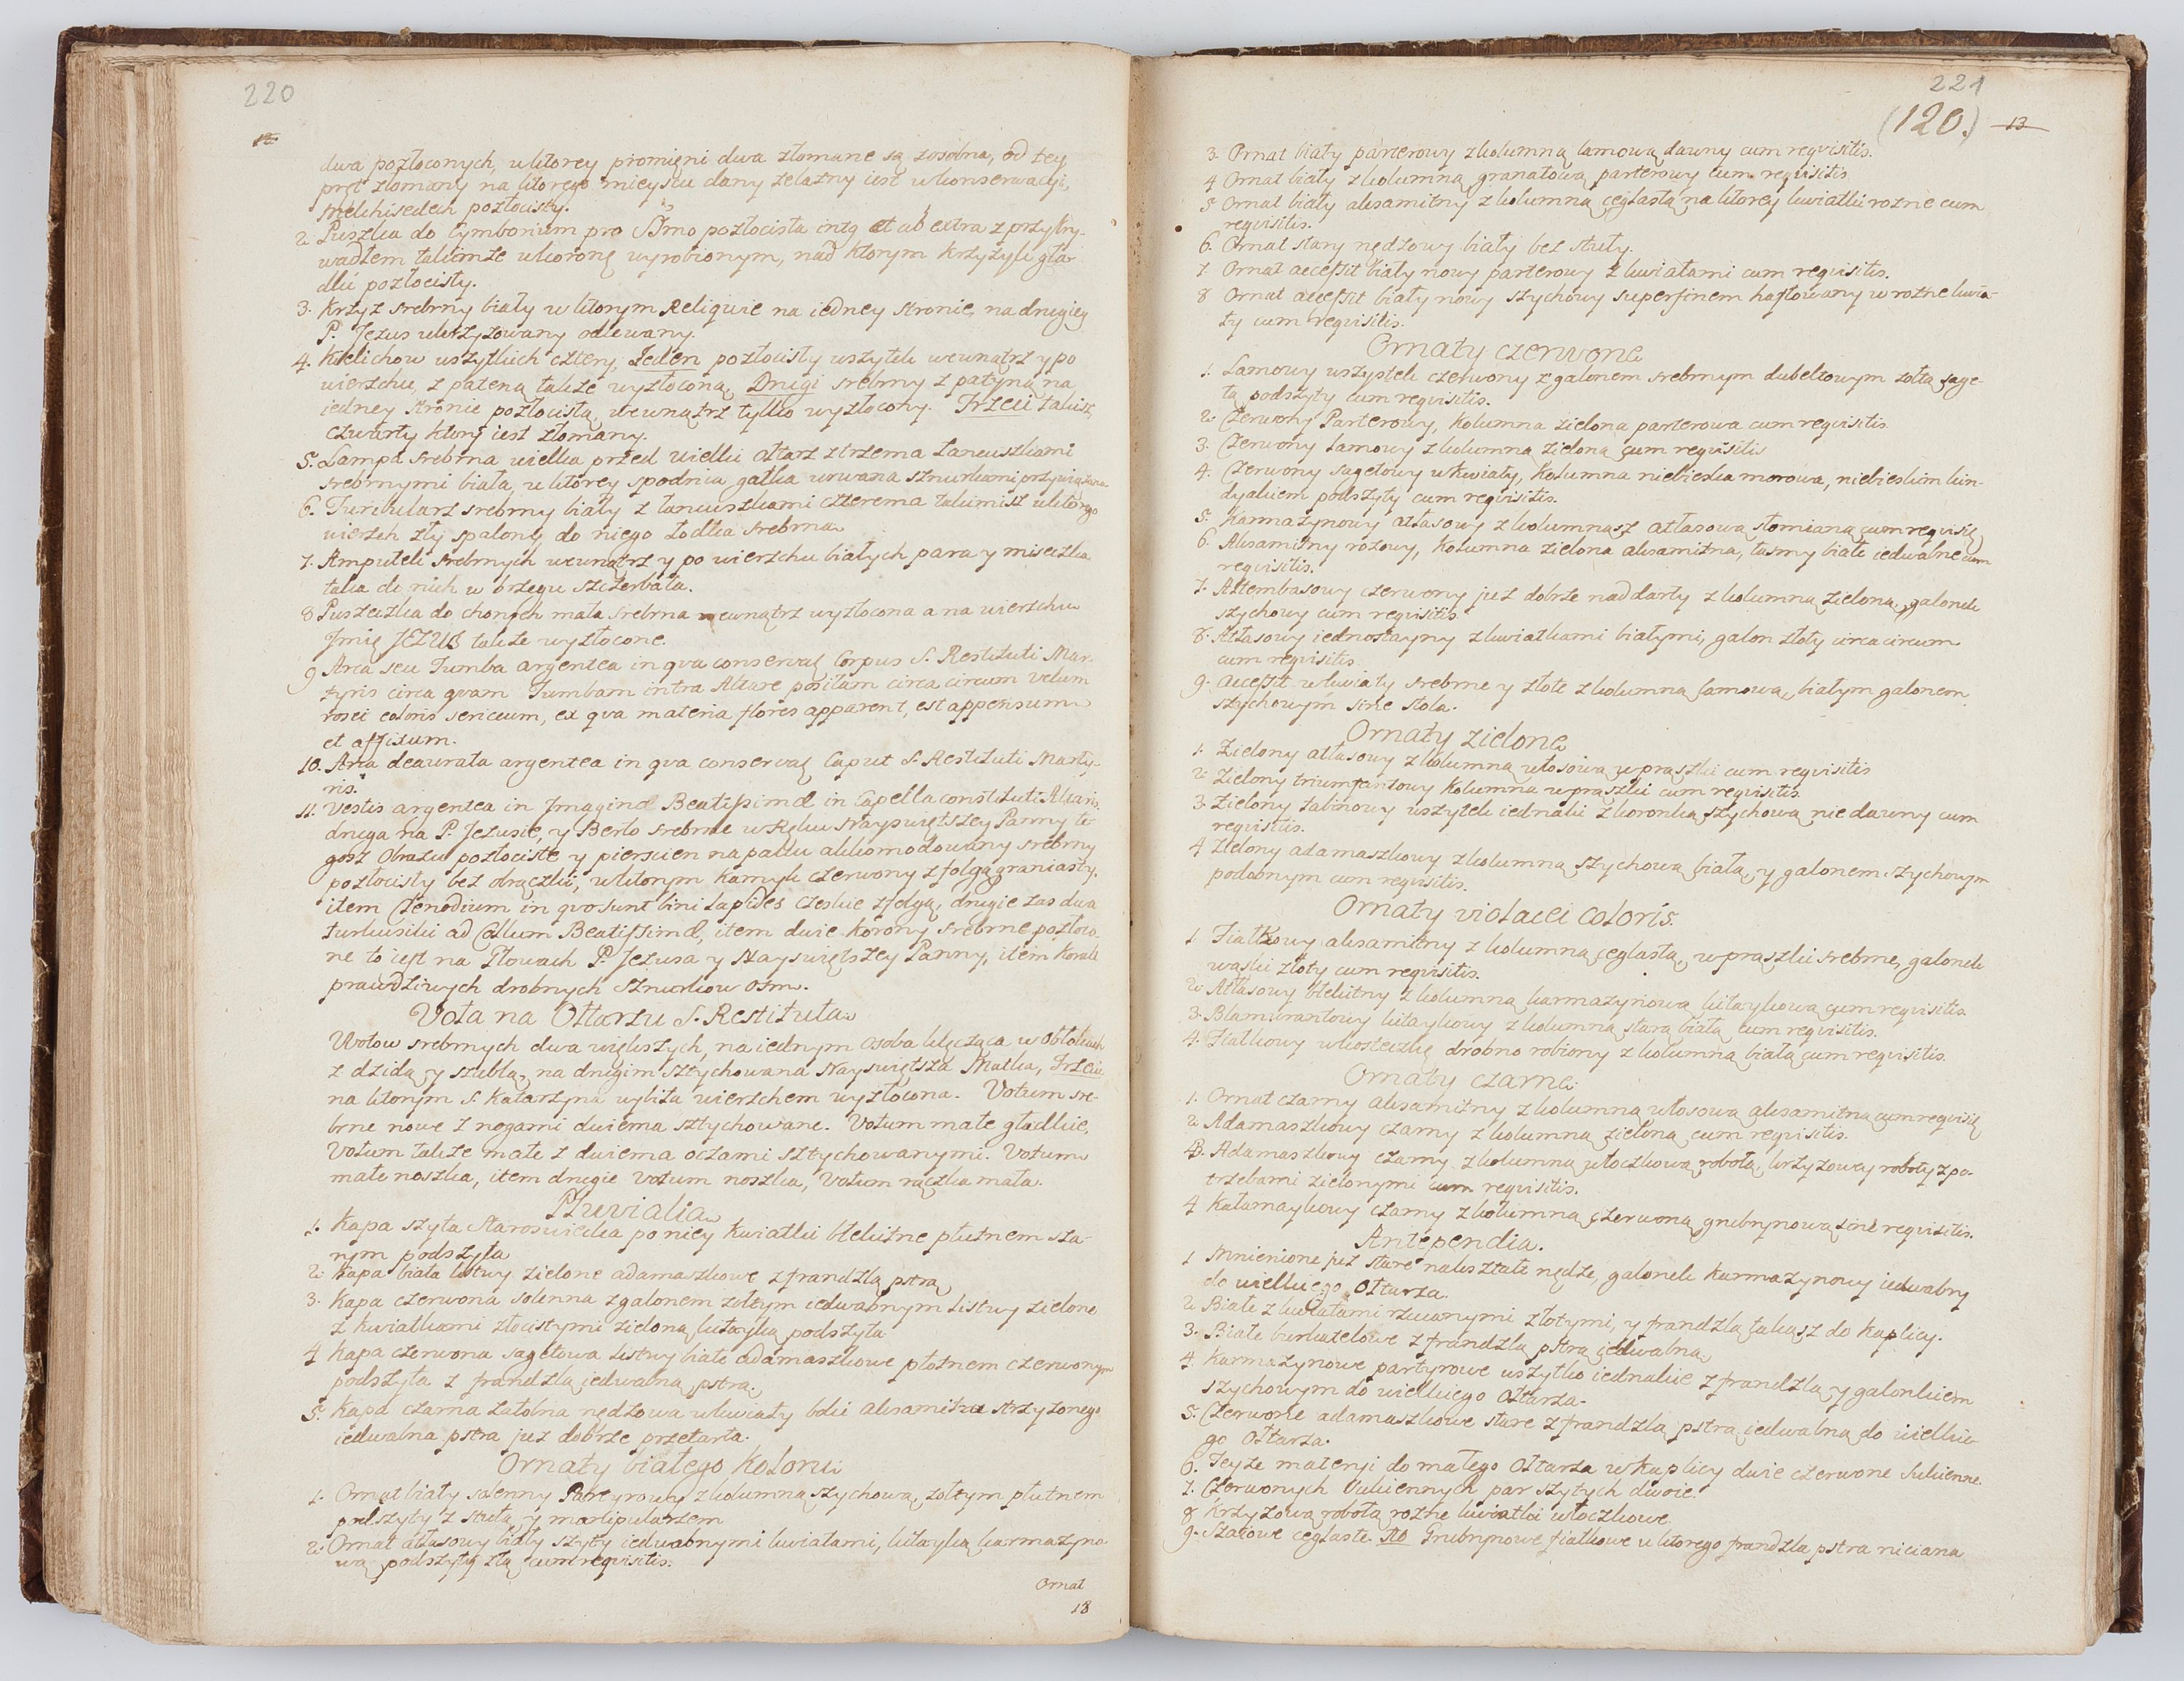 220
12
dwa pozłoconych, w ktorey promięni dwa złomane są zosobna, od tey
pręt złomany na ktorego mieyscu dany żelazny iest w konserwacyi,
Melchisedech pozłocisty.
2. Puszka do Cymborium pro SSmo pozłocista intq et ab extra z przykry-
wadłem takimże w koronę wyrobionym, nad ktorym krzyżyk gła-
dki pozłocisty.
3. Krzyż srebrny biały w ktorym Reliqwie na iedney stronie, na drugiey
P. Jezus ukrzyżowany odlewany.
4. Kielichow wszytkich cztery, Jeden pozłocisty wszytek wewnątrz y po
wierzchu, z pateną także wyzłoconą, Drugi srebrny z patyną na
iedney stronie pozłocistą wewnątrz tylko wyzłocony. Trzeci takisz,
czwarty ktory iest złomany.
5. Lampa srebrna wielka przed wielki Ołtarz z trzema Łancuszkami
srebrnymi biała, w ktorey spodnia gałka urwana sznurkami przywiązana
6. Turibularz srebrny biały z łancuszkami czterema takimisz u ktorego
wierzch zły spalony, do niego Łodka srebrna
7. Ampułek srebrnych wewnątrz y po wierzchu białych para y miseczka
taka do nich w brzegu szczerbata.
8 Puszeczka do chorych mała srebrna wewnątrz wyzłocona a na wierzchu
Jmię JEZUS także wyzłocone.
9 Arca seu Tumba argentea in qva conservatz Corpus S. Restituti Mar-
tyris circa qvam Tumbam intra Altare positam circa circum velum
rosei coloris sericeum, ex qva materia flores apparent, est appensum
et affixum.
10. Arca deaurata argentea in qva conservatz Caput S. Restituti Marty-
ris.
11. Vestis argentea in Jmagine Beatissimæ in Capella constituti Altaris.
druga na P. Jezusie, y Berło srebrne w Ręku Nayswiętszey Panny te-
gosz Obrazu pozłociste y pierscien na palcu akkomodowany srebrny
pozłocisty bez obrączki, w ktorym kamyk czerwony z folgą graniasty,
item Clenodium in qvo sunt bini Lapides czeskie z folgą, drugie zas dwa
turkusiki ad Collum Beatissimæ, item dwie korony srebrne pozłoco-
ne to iest na Głowach P. Jezusa y Nayswiętszey Panny, item Korali
prawdziwych drobnych sznurkow osm.
Vota na Ołtarzu S. Restituta
Wotow srebrnych dwa większych, na iednym osoba klęcząca w Obłokach
z dzidą y szablą, na drugim sztychowana Nayswiętsza Matka, Trzecie
na ktorym S. Katarzyna wybita wierzchem wyzłocona. Votum sre-
brne nowe z nogami dwiema sztychowane. Votum małe gładkie,
Votum także małe z dwiema oczami sztychowanymi. Votum
małe noszka, item drugie Votum noszka, Votum rączka mała.
Pluvialia
1. Kapa szyta Staroswiecka po niey kwiatki błekitne płutnem sza-
rym podszyta
2. Kapa biała listwy zielone adamaszkowe z frandzlą pstrą
3. Kapa czerwona solenna z galonem żołtym iedwabnym Listwy zielone
z kwiatkami złocistymi zieloną kitayką podszyta
4 Kapa czerwona sagetowa Listwy białe adamaszkowe płotnem czerwonym
podszyta z frandzlą iedwabną pstrą.
5. Kapa czarna żałobna nędzowa w kwiaty boki Aksamitu strzyżonego
iedwabna pstra już dobrze przetarta.
Ornaty białego Koloru
1. Ornat biały solenny Parterowy z kolumną szychową, żołtym płutnem
podszyty z stułą y manipularzem
2. Ornat atłasowy biały szyty iedwabnymi kwiatami, kitayką karmazyno-
wą podszyty złą cum reqvisitis.
Ornat
18
221
(120.) 13
3 Ornat biały parterowy z kolumną lamową dawny cum reqvisitis.
4 Ornat biały z kolumną granatową parterowy cum reqvisitis
5 Ornat biały aksamitny z kolumną ceglastą na ktorey kwiatki rozne cum
reqvisitis.
6. Ornat stary nędzowy biały bez stuły.
7 Ornat accessit biały nowy parterowy z kwiatami cum reqvisitis.
8 Ornat accessit biały nowy szychowy superfinem haftowany w rozne kwia-
ty cum reqvisitis.
Ornaty czerwone
1. Lamowy wszystek czerwony z galonem srebrnym dubeltowym żołtą sage-
tą podszyty cum reqvisitis.
2. Czerwony Parterowy, Kolumna zielona parterowa cum reqvisitis
3. Czerwony Lamowy z kolumną zieloną cum reqvisitis
4. Czerwony sagetowy w kwiaty, Kolumna niebieska morowa, niebieskim kin-
dyakiem podszyty cum reqvisitis.
5. Karmazynowy atłasowy z kolumnasz atłasową słomianą cum reqvisitz
6. Aksamitny rozowy, Kolumna zielona aksamitna, tasmy białe iedwabne cum
reqvisitis.
7. Altembasowy czerwony już dobrze naddarty z kolumną zieloną, galonek
szychowy cum reqvisitis
8. Atłasowy iednostayny z kwiatkami białymi, galon złoty circa circum
cum reqvisitis
9. Accessit w kwiaty srebrne y złote z kolumną lamową, białym galonem
szychowym sine stola.
Ornaty zielone
1. Zielony atłasowy z kolumną włosową w prąszki cum reqvisitis
2. Zielony triumfantowy Kolumna w prąszki cum reqvisitis.
3. Zielony tabinowy wszytek iednaki z koronką szychową nie dawny cum
reqvisitis.
4 Zielony adamaszkowy z kolumną szychową białą, y galonem szychowym
podobnym cum reqvisitis.
Ornaty violacei Coloris.
1 Fiałkowy aksamitny z kolumną ceglastą, w prąszki srebrne, galonek
wąski złoty cum reqvisitis.
2 Atłasowy błekitny z kolumną karmazynową kitaykową cum reqvisitis.
3. Blamurantowy kitaykowy z kolumną starą białą cum reqvisitis.
4. Fiałkowy w kosteczkę drobno robiony z kolumną białą cum reqvisitis.
Ornaty czarne
1. Ornat czarny aksamitny z kolumną włosową aksamitną cum reqvisitz
2. Adamaszkowy czarny z kolumną zieloną cum reqvisitis.
3. Adamaszkowy czarny z kolumną włoczkową robotą, krzyżowey roboty z po-
trzebami zielonymi cum reqvisitis.
4 Kałamaykowy czarny z kolumną czerwoną grubrynową sine reqvisitis.
Antependia.
1 Mnienione już stare nakształt nędze, galonek karmazynowy iedwabny
do wielkiego Ołtarza.
2. Białe z kwiatami rzucanymi złotymi, y frandzlą takąsz do Kaplicy.
3. Białe burkatelowe z frandzlą pstrą iedwabną
4. Karmazynowe partyrowe wszytko iednakie z frandzlą y galonkiem
szychowym do wielkiego Ołtarza.
5. Czerwone adamaszkowe stare z frandzlą pstrą iedwabną do wielkie-
go Ołtarza.
6. Teyże materyi do małego Ołtarza w Kaplicy dwie czerwone sukienne
7. Czerwonych sukiennych par szytych dwoie.
8 Krzyżową robotą rozne kwiatki włoczkowe
9. Szatowe ceglaste. No Grubrynowe fiałkowe u ktorego frandzla pstra niciana